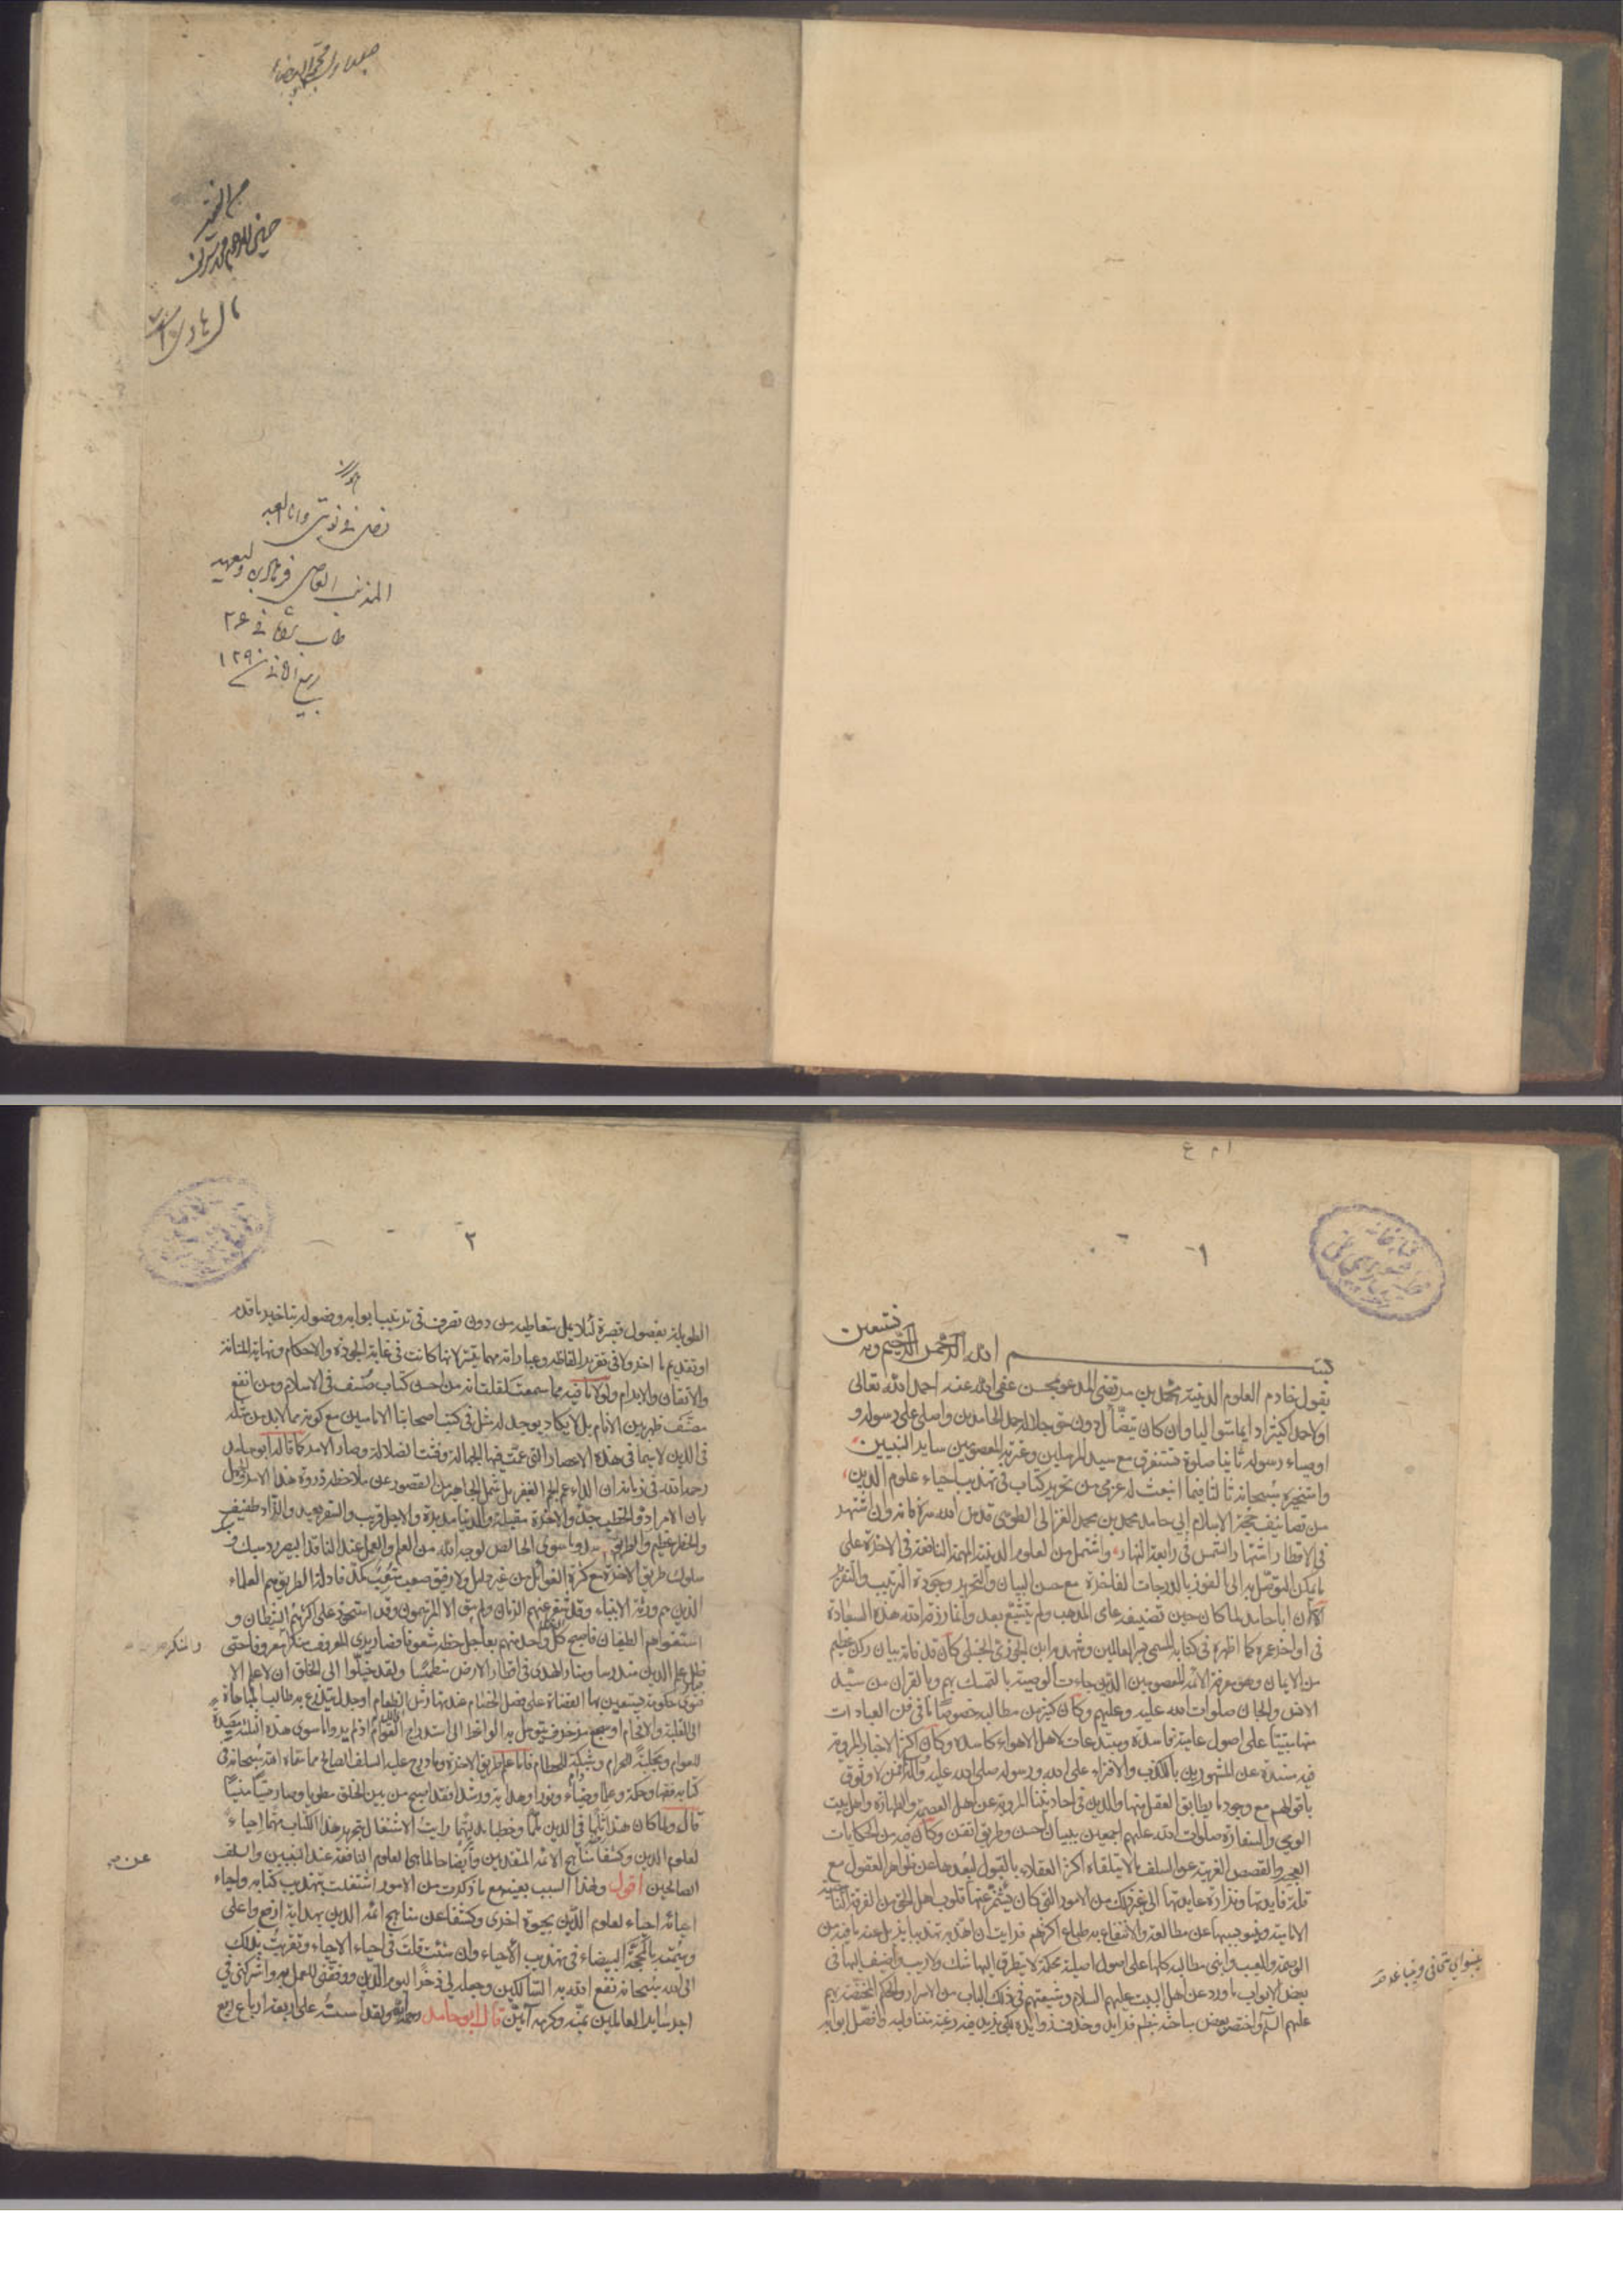 المحجة البيضاء
من
فى نوبتى وانا العبد
المذنب العاصى فرهاد بن وليعهد
طاب ثراه فى ٢۶
ربيع الثانى ١٢٩٠
١
بسم الله الرحمن الرحيم وبه نستعين
يقول خادم العلوم الدينية محمد بن مرتضى المدعو بمحسن عفى الله عنه احمد الله تعالى
اولا حمدا كثيرا دايما متواليا وان كان يتضأل دون حق جلاله حمد الحامدين واصلى على رسوله و
اوصياء رسوله ثانيا صلوة تستغرق مع سيد المرسلين وعترته المعصومين ساير النبيين
واستخيره سبحانه ثالثا فيما انبعث له عزمى من تحرير كتاب فى تهذيب احياء علوم الدين
من تصانيف حجة الاسلام ابى حامد محمد بن محمد الغزالى الطوسى قدس الله سره فانه وان اشتهر
فى الاقطار اشتهار الشمس فى رابعة النهار واشتمل من العلوم الدينية المهمة النافعة فى الاخرة على
ما يمكن التوصل به الى الفوز بالدرجات الفاخرة مع حسن البيان والتحرير وجودة الترتيب والتقرير
الا ان ابا حامد لما كان حين تصنيفه عامى المذهب ولم يتشيع بعد وانما رزقه الله هذه السعادة
فى اواخر عمره كما اظهره فى كتابه المسمى بسر العالمين وشهد به ابن الجوزى الحنبلى كان قد فاته بيان ركن عظيم
من الايمان وهو معرفة الائمة المعصومين الذين جاءت الوصية بالتمسك بهم وبالقران من سيد
الانس والجان صلوات الله عليه وعليهم وكان كثير من مطالبه خصوصا ما فى فن العبادات
منها مبتنيا على اصول عامية فاسدة ومبتدعات لاهل الاهواء كاسدة وكان اكثر الاخبار المروية
فيه مسندة عن المشهورين بالكذب والافتراء على الله ورسوله صلى الله عليه واله ممن لا وثوق
باقوالهم مع وجود ما يطابق العقل منها والدين فى احاديثنا المروية عن اهل العصمة والطهارة واهل بيت
الوحى والسفارة صلوات الله عليهم اجمعين ببيان احسن وطريق اتقن وكان فيه من الحكايات
العجيبة والقصص الغريبة عن السلف ما لا يتلقاه اكثر العقلاء بالقبول لبعدها عن ظواهر العقول مع
قلة فايدتها ونزارة عايدتها الى غير ذلك من الامور التى كان يشمئز عنها قلوب اهل الحق من الفرقة الناجية
الامامية وينبو بسببها عن مطالعته والانتفاع به طباع اكثرهم فرايت ان اهذبه تهذيبا يزيل عنه ما فيه من
الوصمة والعيب وابنى مطالبه كلها على اصول اصيلة محكمة لا يتطرق اليها شك ولا ريب واضيف اليها فى
بعض الابواب ما ورد عن اهل البيت عليهم السلام وشيعتهم فى ذلك الباب من الاسرار والحكم المختصة بهم
عليهم السلام واختصر بعض مباحثه بنظم فرايده وحذف زوايده لكى يزيد فيه رغبة متناوليه وافصل ابوابه
٢
الطويلة بفصول قصيرة لئلا يمل متعاطيه من دون تصرف فى ترتيب ابوابه وفصوله بتاخير ما قدم
او تقديم ما اخر ولا فى تقرير الفاظه وعباراته مهما تيسر لانها كانت فى غاية الجودة والاحكام ونهاية المتانة
والاتقان والابرام ولولا ما فيه مما سمعت لقلت انه من احسن كتاب صنف فى الاسلام ومن انفع
مصنف ظهر بين الانام بل لا يكاد يوجد له مثل فى كتب اصحابنا الاماميين مع كونه مما لا بد من مثله
فى الدين لا سيما فى هذه الاعصار التى عمت فيها الجهالة وفشت الضلالة وصار الامر كما قاله ابو حامد
رحمه الله فى زمانه ان الداء عم الجم الغفير بل شمل الجماهير من القصور عن ملاحظة ذروة هذا الامر والجهل
بان الامر اد والخطب جد والاخرة مقبلة والدنيا مدبرة والاجل قريب والسفر بعيد والزاد طفيف
والخطر عظيم والطريق سد وما سوى الخالص لوجه الله من العلم والعمل عند الناقد البصير رد
سلوك طريق الاخرة مع كثرة الغوائل من غير دليل ولا رفيق صعب متعب مكد فادلة الطريق هم العلماء
الذين هم ورثة الانبياء وقد شغر عنهم الزمان ولم يبق الا المترسمون وقد استحوذ على اكثرهم الشيطان و
استغواهم الطغيان فاصبح كل واحد منهم بعاجل حظه مشغوفا فصار يرى المعروف منكرا والمنكر معروفا حتى
ظل علم الدين مندرسا ومنار الهدى فى اقطار الارض منطمسا ولقد خيلوا الى الخلق ان لا علم الا
فتوى حكومة يستعين بها القضاة على فصل الخصام عند تهارش الطغام او جدل يتذرع به طالب المباهاة
الى الغلبة والافحام او سجع مزخرف يتوسل به الواعظ الى استدراج العوام اذ لم يروا ما سوى هذه الثلثة مصيدة
للعوام ومجلبة للحرام وشبكة للحطام فاما علم طريق الاخرة وما درج عليه السلف الصالح مما سماه الله سبحانه فى
كتابه فقها وحكمة وعلما وضياء ونورا وهداية ورشدا فقد اصبح من بين الخلق مطويا وصار نسيا منسيا
قال ولما كان هذا ثلما فى الدين ملما وخطبا مدلهما رايت الاشتغال بتحرير هذا الكتاب مهما احياء
لعلوم الدين وكشفا عن مناهج الائمة المتقدمين وايضاحا لما هى العلوم النافعة عند النبيين والسلف
الصالحين اقول ولهذا السبب بعينه مع ما ذكرت من الامور اشتغلت بتهذيب كتابه واحياء
احيائه احياء لعلوم الدين بحيوة اخرى وكشفا عن مناهج ائمة الدين بهداية ارفع واعلى
وسميته بالمحجة البيضاء فى تهذيب الاحياء وان شئت قلت فى احياء الاحياء وتقربت بذلك
الى الله سبحانه نفع الله به السالكين وجعله لى ذخرا ليوم الدين ووفقنى للعمل به واشركنى فى
اجر ساير العالمين بمنه وكرمه آمين قال ابو حامد رحمه الله ولقد اسسته على اربعة ارباع ربع
والمنكر
عن